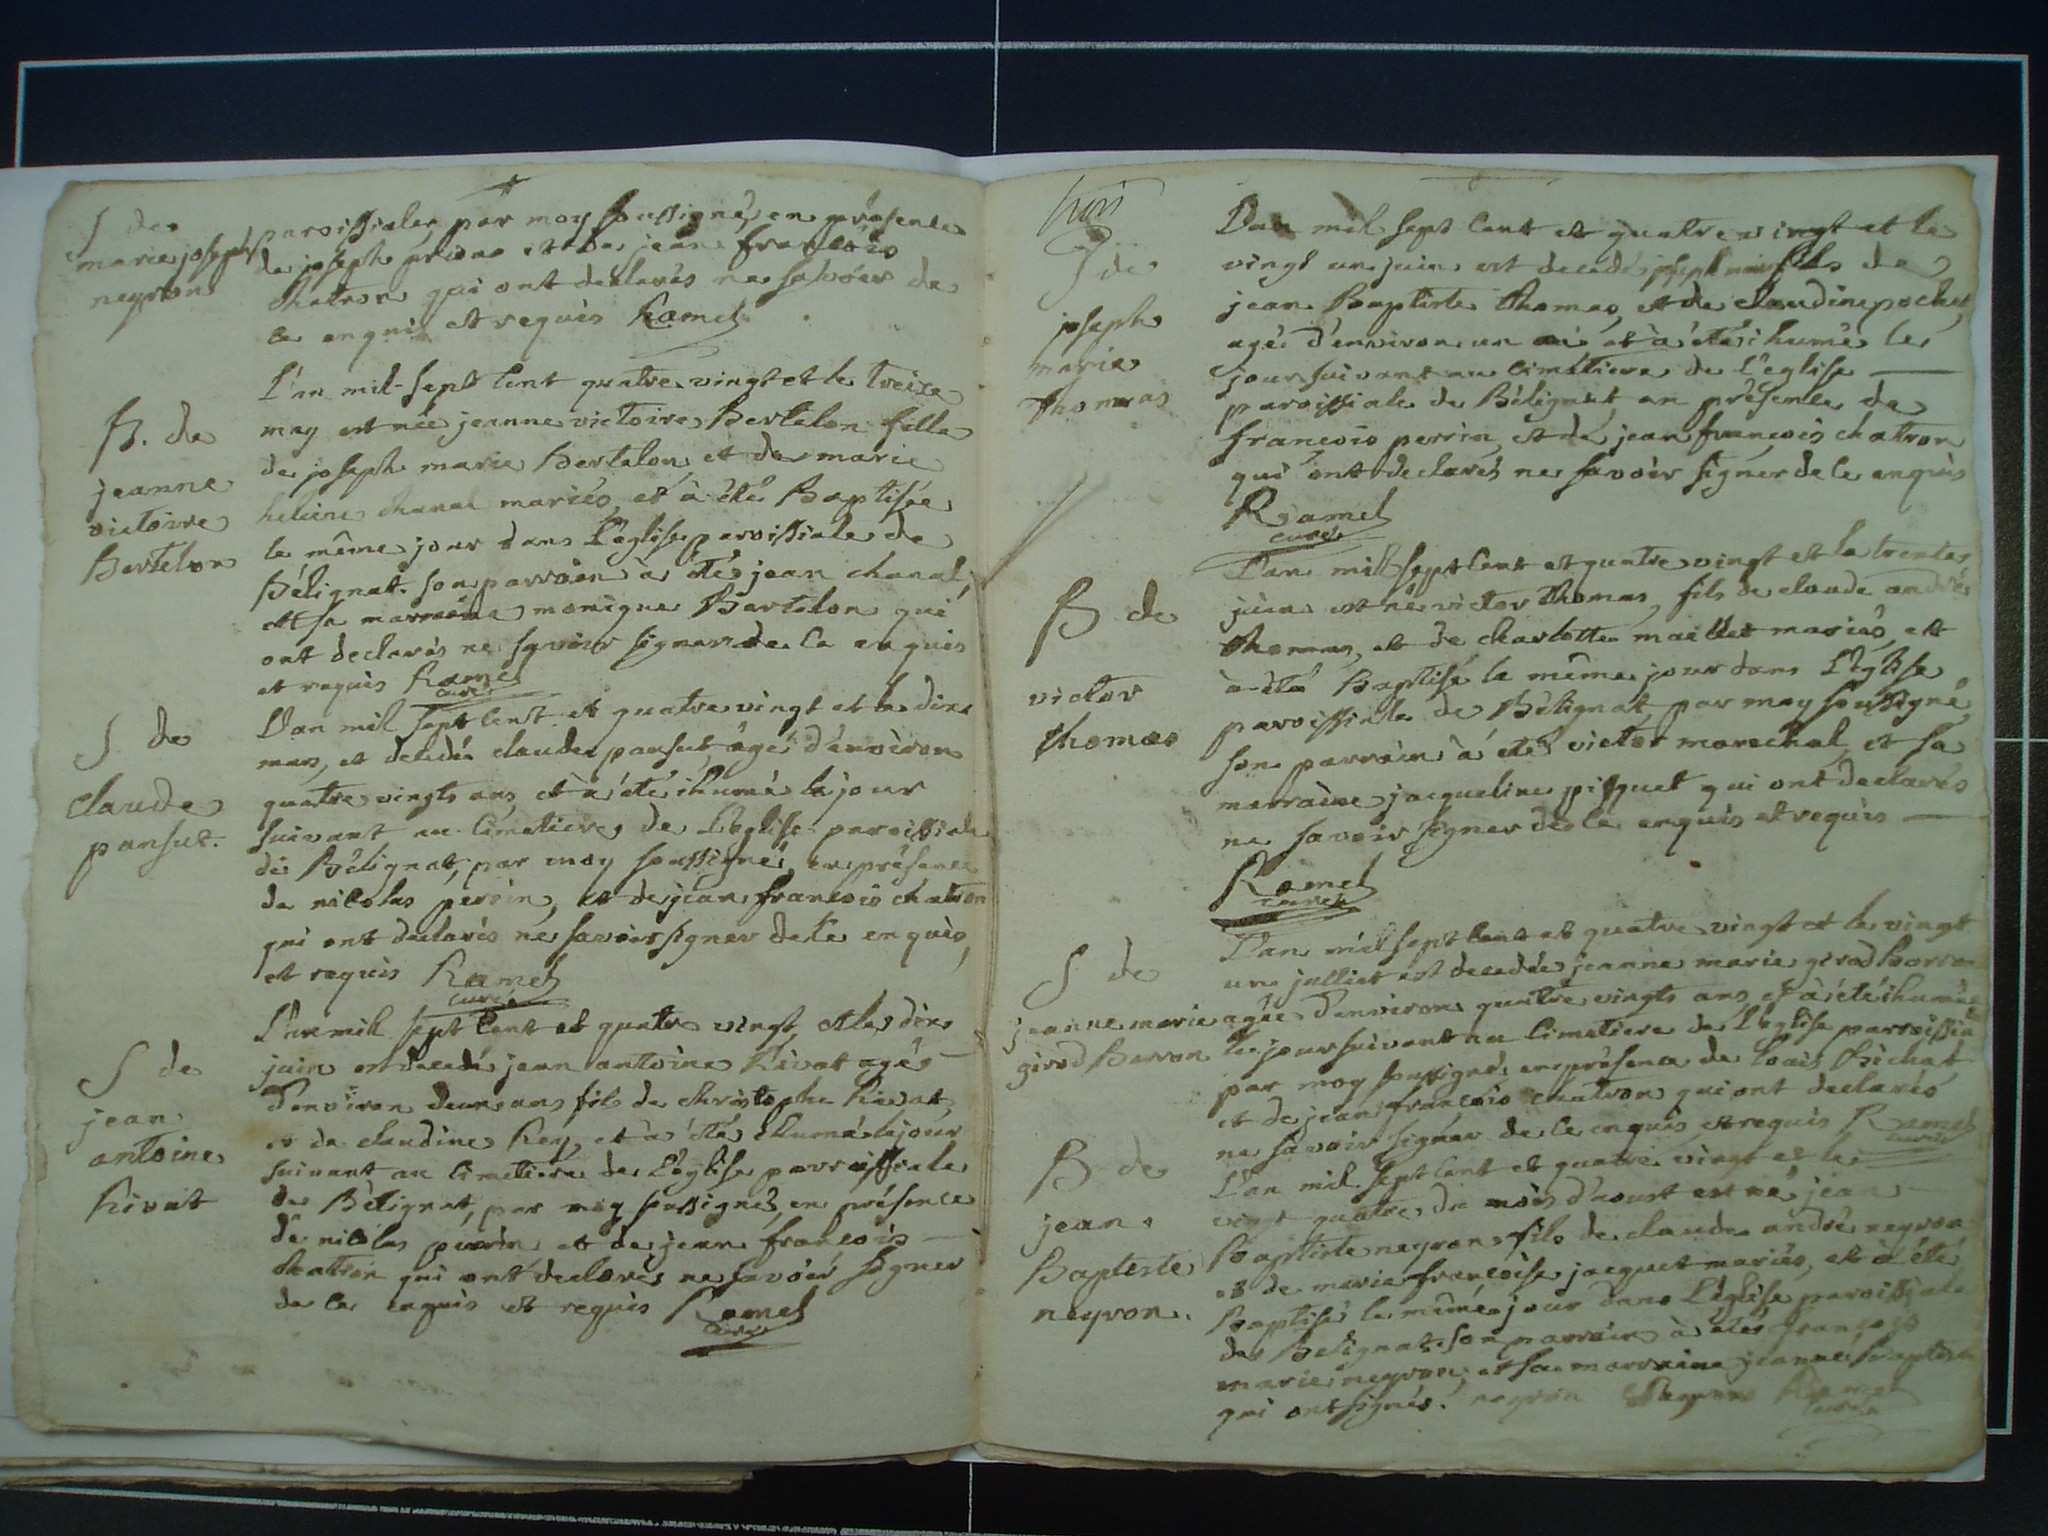 S de
marie joseph
neyron
paroissiales par moy soussigné, en présence
de joseph prieno et de jean francois
chatron qui ont declarés ne savoir de
ce enquis et requis Ramel
B. de
jeanne
victoire
Bertelon
L'an mil sept cent quatre vingt et le treize
may est née jeanne victoire Bertelon fille
de joseph marie Bertelon et de marie
heleine chanal mariés, et à été Baptisée
le même jour dans l'eglise paroissiale de
Bélignat. son parrain à été jean chanal,
et sa marraine monique Bertelon qui
ont declarés ne savoir signer de ce enquis
et requis Ramel
curé
S de
claude
pansut.
L'an mil sept cent et quatre vingt et le dix
may, et decedé claude pansut âgé d'environ
quatre vingts ans, et à été ihumé le jour
suivant au cimetiere de l'eglise paroissiale
de Bélignat, par moy soussigné, en présence
de nicolas perrin, et de jean francois chatron
qui ont declarés ne savoir signer de ce enquis,
et requis Ramel
curé
S de
jean
antoine
Rivat
L'an mil sept cent et quatre vingt, et le dix
juin est decedé jean antoine Rivat agé
d'environ deux ans fils de christophe Rivat
et de claudine Rey, et à été ihumé le jour
suivant au cimetiere de l'eglise parroissiale
de Bélignat, par moy soussigné, en présence
de nicolas perrin et de jean francois
chatron qui ont declarés ne savoir signer
de ce enquis et requis Ramel
curé
trois
S de
joseph
marie
thomas
L'an mil sept cent et quatre vingt et le
vingt un juin est decedé joseph marie fils de
jean Baptiste thomas, et de claudine pochet,
agé d'environ un an et à été ihumé le
jour suivant au cimetiere de l'eglise
paroissiale de Bélignat en présence de
françois perrin, et de jean francois chatron
qui ont declarés ne savoir signer de ce enquis
Ramel
curé
B de
victor
thomas
L'an mil sept cent et quatre vingt et le trente
juin est né victor thomas, fils de claude andré
thomas, et de charlotte maillet mariés, et
à été Baptisé le même jour dans l'eglise
paroissiale de Bélignat par moy soussigné
son parrain à été victor marechal et sa
marraine jacqueline pisquet qui ont declarés
ne savoir signer de ce enquis et requis
Ramel
curé
S de
jeanne marie
girod Barron
L'an mil sept cent et quatre vingt et le vingt
un julliet est decedée jeanne marie girod Barron
agée d'environ quatre vingts ans et à été ihumée
le jour suivant au cimetiere de l'eglise parroissiale
par moy soussigné en présence de louis Bichat
et de jean francois chatron qui ont declarés
ne savoir signer de ce enquis et requis Ramel
curé
B de
jean
Bapteste
neyron.
L'an mil sept cent et quatre vingt et le
vingt quatre du mois d'aoust est né jean
Baptiste neyron fils de claude andré neyron
et de marie francoise jacquet mariés, et à été
Baptisé le même jour dans l'eglise paroissiale
de Belignat. son parrain à été francois
marie neyron, et sa marraine jeanne baptiste
qui ont signés. neyron Neyron Ramel
curé